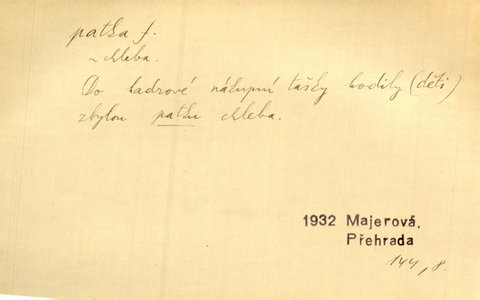 patka f.
~ chleba.
Do hadrové nákupní tašky hodily (děti)
zbylou patku chleba.
1932 Majerová,
Přehrada
144, 8.